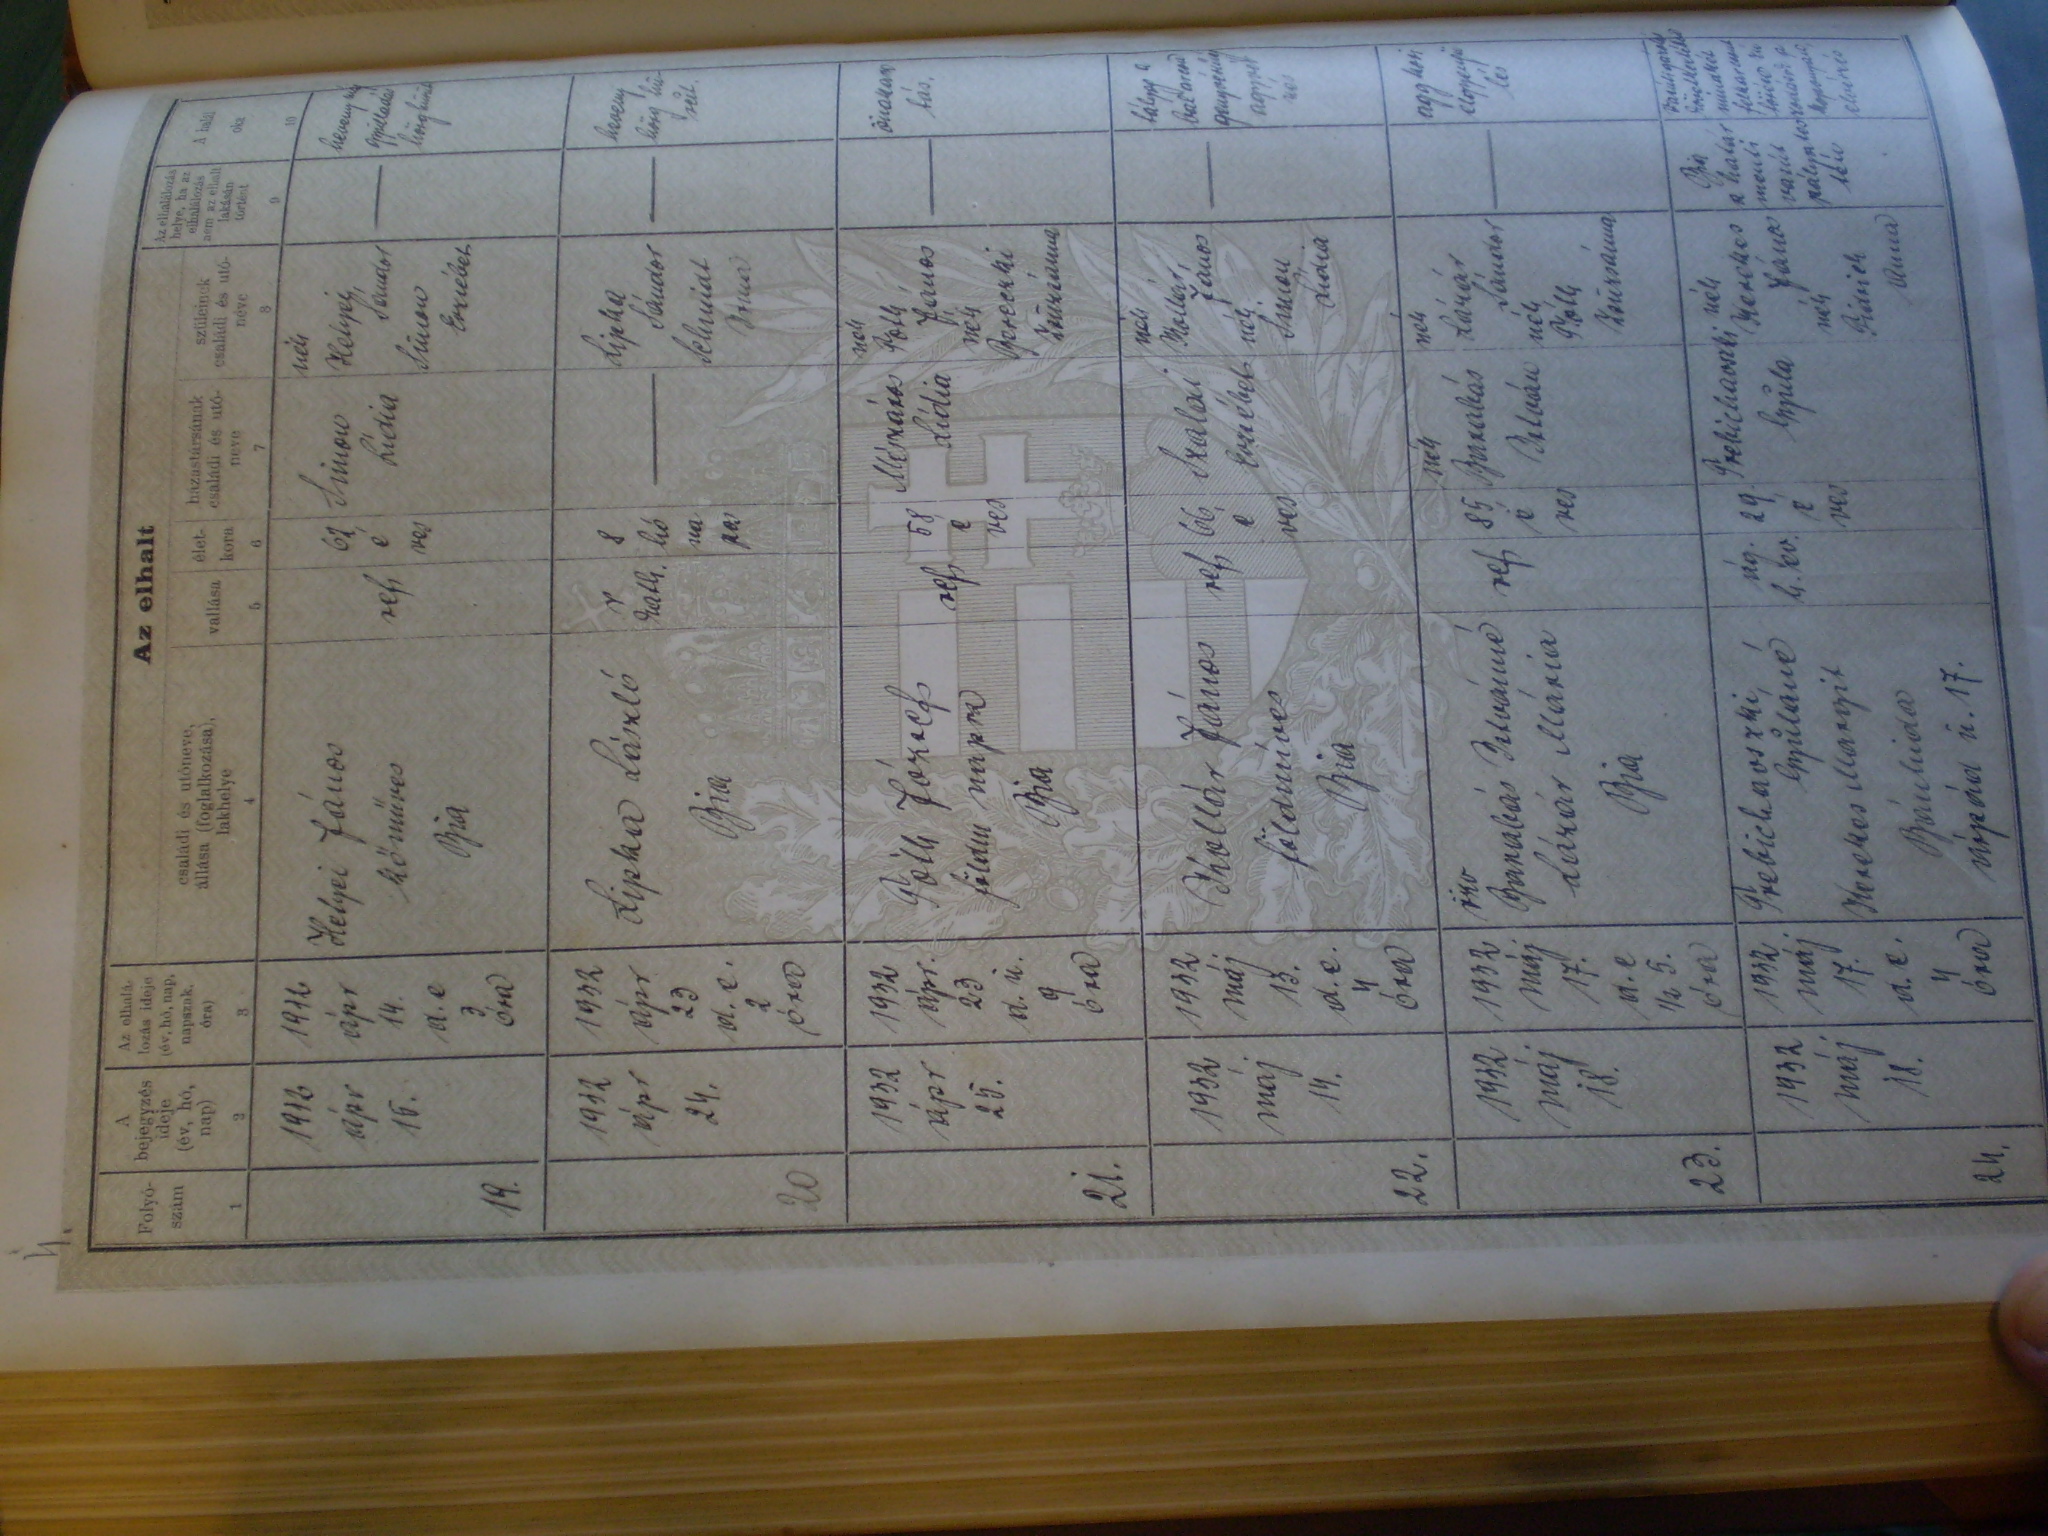 4.
Az elhalt
Folyó-
szám
A
bejegyzés
ideje
(év, hó,
nap)
Az elhalá-
lozás ideje
(év, hó, nap,
napszak,
óra)
családi és utóneve,
állása (foglalkozása),
lakhelye
vallása
élet-
kora
házastársának
családi és utó-
neve
szüleinek
családi és utó-
neve
Az elhalálozás
helye, ha az
elhalálozás
nem az elhalt
lakásán
történt
A halál
oka
1
2
3
4
5
6
7
8
9
10
19.
1932
ápr
15.
1932
ápr
14.
d. e
3
óra
Helyei János
kőműves
Bia
ref
62
é
ves
Simon
Lidia
néh
Helyei
Sándor
Simon
Erzsébet
20
1932
ápr
24.
1932
ápr
23
d. e.
2
óra
Lipka László
Bia
r
kath.
8
hó
na
pos
Lipka
Sándor
Schmidt
Irma
heveny
21.
1932
ápr
25.
1932
ápr.
23
d. u.
9
óra
Tóth József
földm napsz
Bia
ref
58
é
ves
Mészáros
Lídia
néh
Tóth
János
néh
Bereczki
Zsuzsánna
22.
1932
máj
14.
1932
máj
13.
d. e.
4
óra
Kollár János
földmíves
Bia
ref
66
é
ves
Szalai
Erzsébet
néh
Kollár
János
néh.
Simon
Lidia
23.
1932
máj
18.
1932
máj
17.
d. e
1/2 5.
óra
özv
Barabás Istvánné
Lázár Mária
Bia
ref
85
é
ves
néh
Barabás
István
néh
Lázár
Sándor
néh
Tóth
Zsuzsánna
agg kori
elgyengü
lés
24.
1932
máj
18.
1932.
máj
17.
d. e.
4
óra
Gyuláné
Kerekes Margit
Bánhida
Árpád u. 17.
ág.
h. ev.
29.
é
ves
Gyula
néh
Kerekes
János
néh
Anna
Bia
a határ
menti
vasút